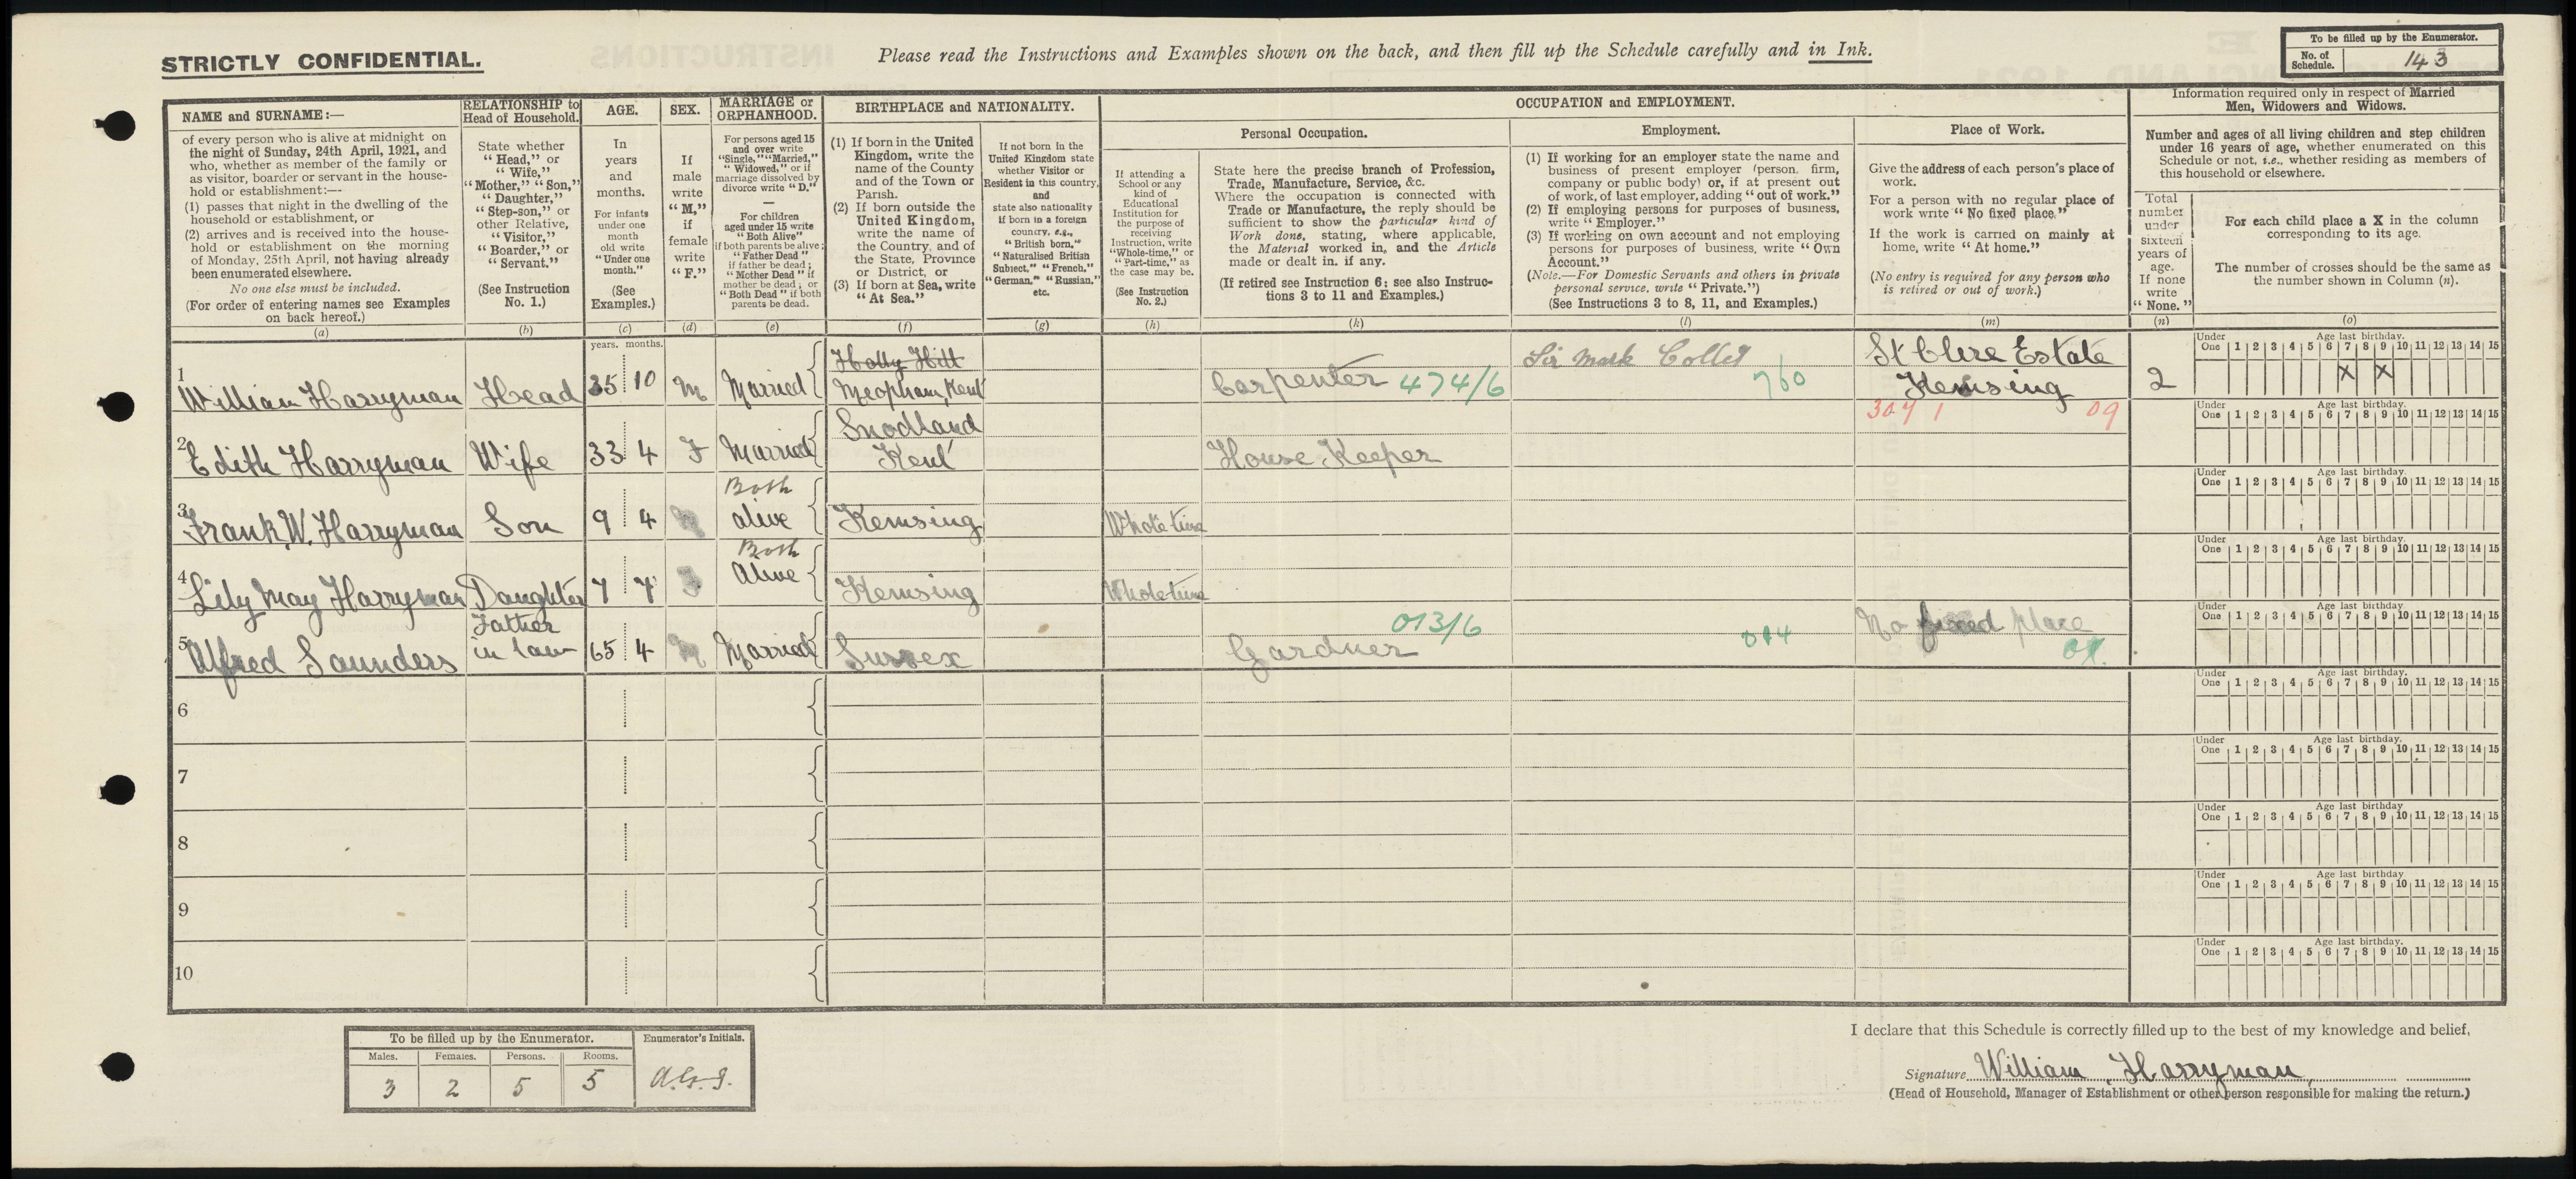 STRICTLY CONFIDENTIAL.
Please read the Instructions and Examples shown on the back, and then fill up the Schedule carefully and in Ink.
To be filled up by the Enumerator.
No. of Schedule. 143
NAME and SURNAME:—
of every person who is alive at midnight on
the night of Sunday, 24th April, 1921, and
who, whether as member of the family or
as visitor, boarder or servant in the house-
hold or establishment:—
(1) passes that night in the dwelling of the
household or establishment, or
(2) arrives and is received into the house-
hold or establishment on the morning
of Monday, 25th April, not having already
been enumerated elsewhere.
No one else must be included.
(For order of entering names see Examples
on back hereof.)
(a)
RELATIONSHIP to
Head of Household.
State whether
"Head," or
"Wife,"
"Mother," "Son,"
"Daughter,"
"Step-son," or
other Relative,
"Visitor,"
"Boarder," or
"Servant."
(See Instruction
No. 1.)
(b)
AGE.
In
years
and
months.
For infants
under one
month
old write
"Under one
month."
(See
Examples.)
(c)
SEX.
If
male
write
"M,"
if
female
write
"F."
(d)
MARRIAGE or
ORPHANHOOD.
For persons aged 15
and over write
"Single," "Married,"
"Widowed," or if
marriage dissolved by
divorce write "D."
—
For children
aged under 15 write
"Both Alive"
if both parents be alive;
"Father Dead"
if father be dead;
"Mother Dead" if
mother be dead; or
"Both Dead" if both
parents be dead.
(e)
BIRTHPLACE and NATIONALITY.
(1) If born in the United
Kingdom, write the
name of the County
and of the Town or
Parish.
(2) If born outside the
United Kingdom,
write the name of
the Country, and of
the State, Province
or District, or
(3) If born at Sea, write
"At Sea."
(f)
If not born in the
United Kingdom state
whether Visitor or
Resident in this country,
and
state also nationality
if born in a foreign
country, e.g.,
"British born,"
"Naturalised British
Subject," "French,"
"German," "Russian,"
etc.
(g)
OCCUPATION and EMPLOYMENT.
If attending a
School or any
kind of
Educational
Institution for
the purpose of
receiving
Instruction, write
"Whole-time," or
"Part-time," as
the case may be.
(See Instruction
No. 2.)
(h)
Personal Occupation.
State here the precise branch of Profession,
Trade, Manufacture, Service, &c.
Where the occupation is connected with
Trade or Manufacture, the reply should be
sufficient to show the particular kind of
Work done, stating, where applicable,
the Material worked in, and the Article
made or dealt in, if any.
(If retired see Instruction 6; see also Instruc-
tions 3 to 11 and Examples.)
(k)
Employment.
(1) If working for an employer state the name and
business of present employer (person, firm,
company or public body) or, if at present out
of work, of last employer, adding "out of work."
(2) If employing persons for purposes of business,
write "Employer."
(3) If working on own account and not employing
persons for purposes of business, write "Own
Account."
(Note.—For Domestic Servants and others in private
personal service, write "Private.")
(See Instructions 3 to 8, 11, and Examples.)
(l)
Place of Work.
Give the address of each person's place of
work.
For a person with no regular place of
work write "No fixed place."
If the work is carried on mainly at
home, write "At home."
(No entry is required for any person who
is retired or out of work.)
(m)
Information required only in respect of Married
Men, Widowers and Widows.
Number and ages of all living children and step children
under 16 years of age, whether enumerated on this
Schedule or not, i.e., whether residing as members of
this household or elsewhere.
Total
number
under
sixteen
years of
age.
If none
write
"None."
(n)
For each child place a X in the column
corresponding to its age.
The number of crosses should be the same as
the number shown in Column (n).
(o)
years. months.
Holly Hill
1 William Harryman Head 35 10 M Married Meopham, Kent Carpenter 474/6 Sir Mark Collet 760 St Clere Estate Kemsing 2
Under One Age last birthday. 1 2 3 4 5 6 7 8 9 10 11 12 13 14 15
X X
307 1 09
2 Edith Harryman Wife 33 4 F Married Snodland Kent House Keeper
Under One Age last birthday. 1 2 3 4 5 6 7 8 9 10 11 12 13 14 15
3 Frank W. Harryman Son 9 4 M Both alive Kemsing Whole time
Under One Age last birthday. 1 2 3 4 5 6 7 8 9 10 11 12 13 14 15
4 Lily May Harryman Daughter 7 7 F Both Alive Kemsing Whole time
Under One Age last birthday. 1 2 3 4 5 6 7 8 9 10 11 12 13 14 15
5 Alfred Saunders Father in law 65 4 M Married Sussex Gardner 013/6 014 No fixed place
Under One Age last birthday. 1 2 3 4 5 6 7 8 9 10 11 12 13 14 15
6
Under One Age last birthday. 1 2 3 4 5 6 7 8 9 10 11 12 13 14 15
7
Under One Age last birthday. 1 2 3 4 5 6 7 8 9 10 11 12 13 14 15
8
Under One Age last birthday 1 2 3 4 5 6 7 8 9 10 11 12 13 14 15
9
Under One Age last birthday. 1 2 3 4 5 6 7 8 9 10 11 12 13 14 15
10
Under One Age last birthday. 1 2 3 4 5 6 7 8 9 10 11 12 13 14 15
To be filled up by the Enumerator. Enumerator's Initials.
Males. Females. Persons. Rooms.
3 2 5 5
I declare that this Schedule is correctly filled up to the best of my knowledge and belief,
Signature William Harryman
(Head of Household, Manager of Establishment or other person responsible for making the return.)